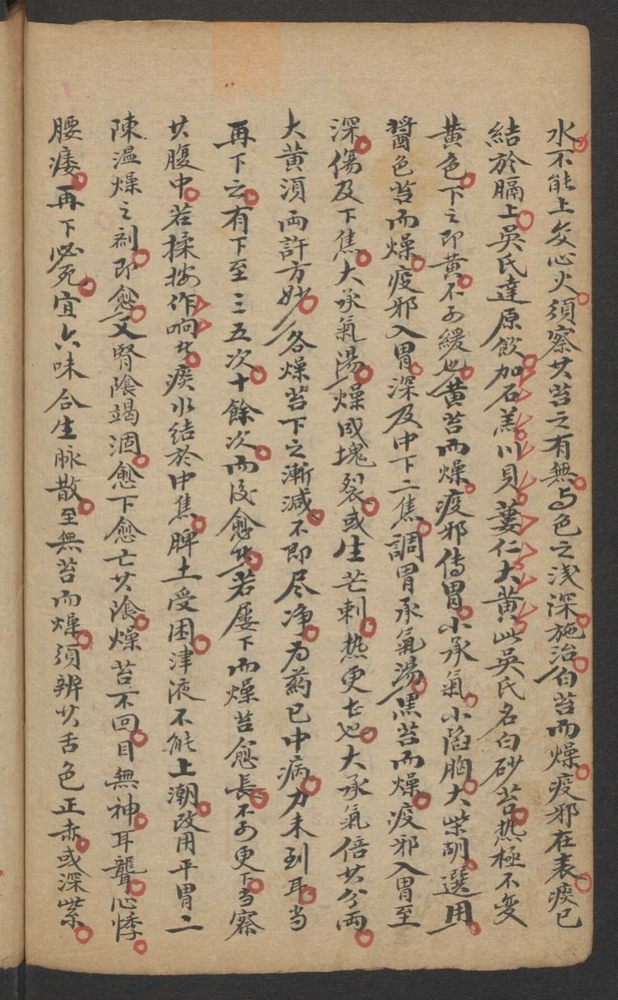 水不能上交心火須察其苔之有無与色之浅深施治白苔而燥疫邪在表痰已
結於膈上吳氏達原飲加石羔川貝蔞仁大黄此吳氏名白砂苔热極不变
黄色下之即黄不可緩也黄苔而燥疫邪傳胃小承氣小陷胸大柴胡選用
醬色苔而燥疫邪入胃深及中下二焦調胃承氣湯黑苔而燥疫邪入胃至
深傷及下焦大承氣湯燥成塊裂或生芒刺热更甚也大承氣倍其分兩
大黄須両許方妙各燥苔下之漸減不即尽净为薬已中病力未到耳当
再下之有下至三五次十餘次而后愈者若屡下而燥苔愈長不可更下当察
其腹中若揉按作响者痰水結於中焦脾土受困津液不能上潮改用平胃二
陳温燥之剤即愈又腎陰竭涸愈下愈亡其陰燥苔不回目無神耳聾心悸
腰痿再下必死宜六味合生脉散至無苔而燥須辨其舌色正赤或深紫